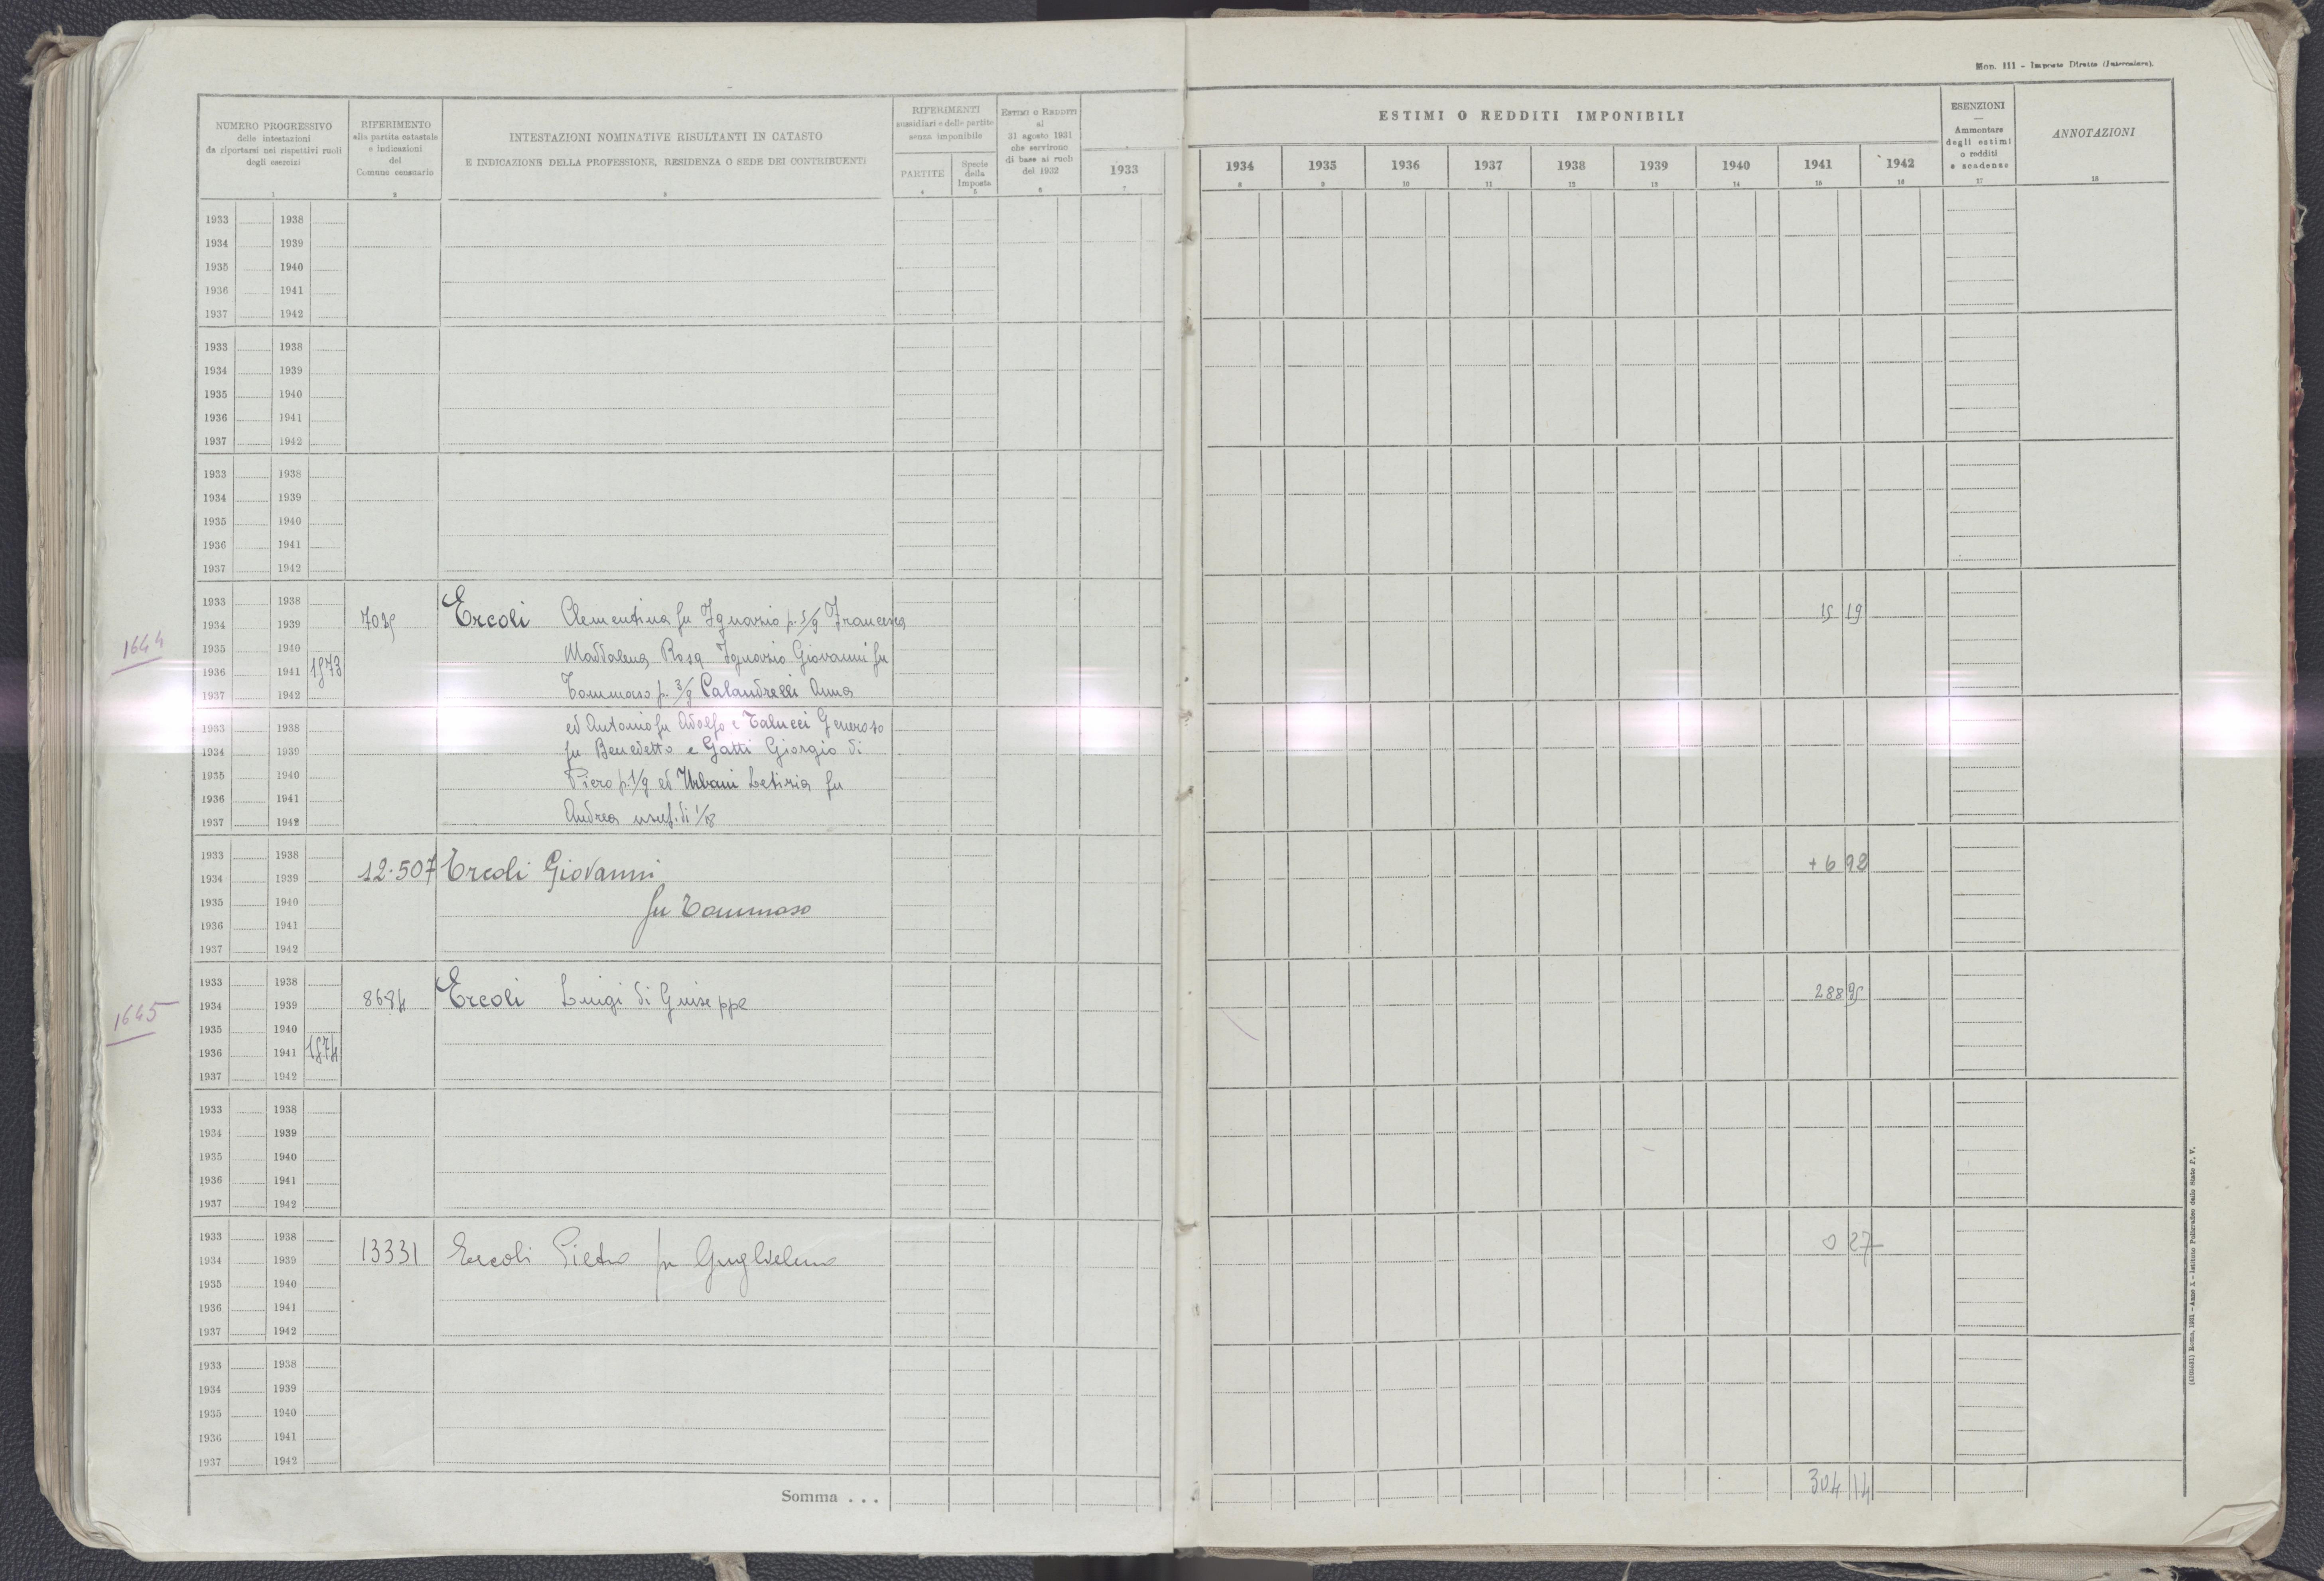 Mod. 111 - Imposte Dirette (Intercalare).
NUMERO PROGRESSIVO
delle intestazioni
da riportarsi nei rispettivi ruoli
degli esercizi
1
RIFERIMENTO
alla partita catastale
e indicazioni
del
Comune censuario
2
INTESTAZIONI NOMINATIVE RISULTANTI IN CATASTO
E INDICAZIONE DELLA PROFESSIONE, RESIDENZA O SEDE DEI CONTRIBUENTI
3
RIFERIMENTI
sussidiari e delle partite
senza imponibile
PARTITE
4
Specie
della
Imposta
5
ESTIMI O REDDITI
al
31 agosto 1931
che servirono
di base ai ruoli
del 1932
6
1933
7
ESTIMI O REDDITI IMPONIBILI
1934 1935 1936 1937 1938 1939 1940 1941 1942
8 9 10 11 12 13 14 15 16
ESENZIONI
—
Ammontare
degli estimi
o redditi
e scadenze
17
ANNOTAZIONI
18
1933 1938
1934 1939
1935 1940
1936 1941
1937 1942
1933 1938
1934 1939
1935 1940
1936 1941
1937 1942
1933 1938
1934 1939
1935 1940
1936 1941
1937 1942
1933 1938
1934 1939 7035 Ercoli Clementina fu Ignazio p. 5/9 Francesca 15 19
1644
1935 1940 Maddalena Rosa Ignazio Giovanni fu
1936 1941 1573
1937 1942 Tommaso p. 3/9 Calandrelli Anna
1933 1938 ed Antonio fu Adolfo e Talucci Generoso
1934 1939 fu Benedetto e Gatti Giorgio di
1935 1940 Piero p. 1/9 ed Urbani Letizia fu
1936 1941
1937 1942 Andrea usuf. di 1/18
1933 1938
1934 1939 12.507 Ercoli Giovanni + 6 92
1935 1940 fu Tommaso
1936 1941
1937 1942
1933 1938
1934 1939 8684 Ercoli Luigi di Giuseppe 288 95
1645
1935 1940
1936 1941 1574
1937 1942
1933 1938
1934 1939
1935 1940
1936 1941
1937 1942
1933 1938
1934 1939 13331 Ercoli Pietro fu Guglielmo 0 27
1935 1940
1936 1941
1937 1942
1933 1938
1934 1939
1935 1940
1936 1941
1937 1942
Somma . . . 304 14
Roma, 1931 - Anno X - Istituto Poligrafico dello Stato P. V.